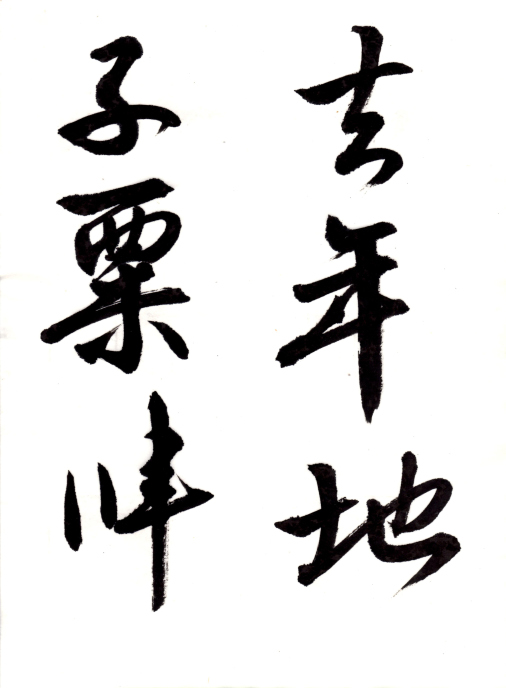 去年地
子粟